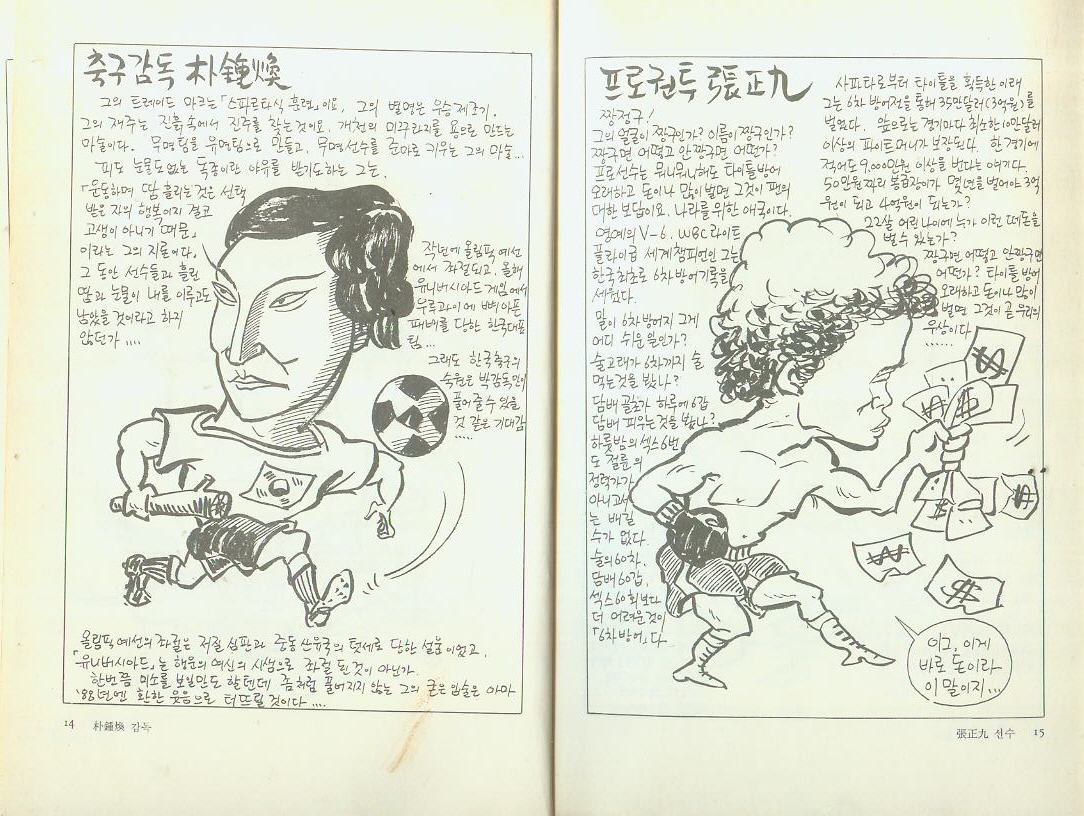 축구감독 朴鍾煥
그의 트레이드 마크는 「스파르타식 훈련」이요, 그의 별명은 우승제조기.
그의 재주는 진흙속에서 진주를 찾는것이요, 개천의 미꾸라지를 용으로 만드는
마술이다. 무명팀을 유명팀으로 만들고, 무명선수를 준마로 키우는 그의 마술...
피도 눈물도없는 독종이란 야유를 받기도하는 그는.
「운동하며 땀 흘리는것은 선택
받은 자의 행복이지 결코
고생이 아니기 때문」
이라는 그의 지론이다.
그 동안 선수들과 흘린
땀과 눈물이 내를 이루고도
남았을것이라고 하지
않던가 ....
작년에 올림픽 예선
에서 좌절되고, 올해
유니버시아드 게임에서
우루과이에 뼈아픈
패배를 당한 한국대표
팀...
그래도 한국축구의
숙원은 박감독만이
풀어줄수 있을
것 같은 기대감
.....
올림픽 예선의 좌절은 저질 심판과 중동 산유국의 텃세로 당한 설움이었고,
「유니버시아드」는 행운의 여신의 시샘으로 좌절 된것이 아닌가.
한번쯤 미소를 보일만도 할텐데 좀처럼 풀어지지 않는 그의 굳은입술은 아마
'88년엔 환한 웃음으로 터뜨릴 것이다 ....
14 朴鍾煥 감독
프로권투 張正九
짱정구!
그의 얼굴이 짱구인가? 이름이 짱구인가?
짱구면 어떻고 안짱구면 어떤가?
프로선수는 뭐니뭐니해도 타이틀방어
오래하고 돈이나 많이 벌면 그것이 팬의
대한 보답이요, 나라를 위한 애국이다.
영예의 V-6. WBC 라이트
플라이급 세계챔피언인 그는
한국최초로 6차방어기록을
세웠다.
말이 6차방어지 그게
어디 쉬운 일인가?
술고래가 6차까지 술
먹는것을 봤나?
담배 골초가 하루에 6갑
담배 피우는것을 봤나?
하룻밤의 섹스 6번
도 절륜의
정력가가
아니고서
는 배길
수가 없다.
술의 60차,
담배 60갑,
섹스 60회보다
더 어려운것이
「6차방어」다.
사파타로부터 타이틀을 획득한 이래
그는 6차 방어전을 통해 35만달러(3억원)를
벌었다. 앞으로는 경기마다 최소한 10만달러
이상의 파이트머니가 보장된다. 한 경기에
적어도 9,000만원 이상을 번다는 얘기다.
50만원짜리 봉급장이가 몇년을 벌어야 3억
원이 되고 4억원이 되는가?
22살 어린 나이에 누가 이런 떼돈을
벌수 있는가?
짱구면 어떻고 안짱구면
어떤가? 타이틀 방어
오래하고 돈이나 많이
벌면 그것이 곧 우리의
우상이다
......
이그, 이게
바로 돈이라
이 말이지...
張正九 선수 15